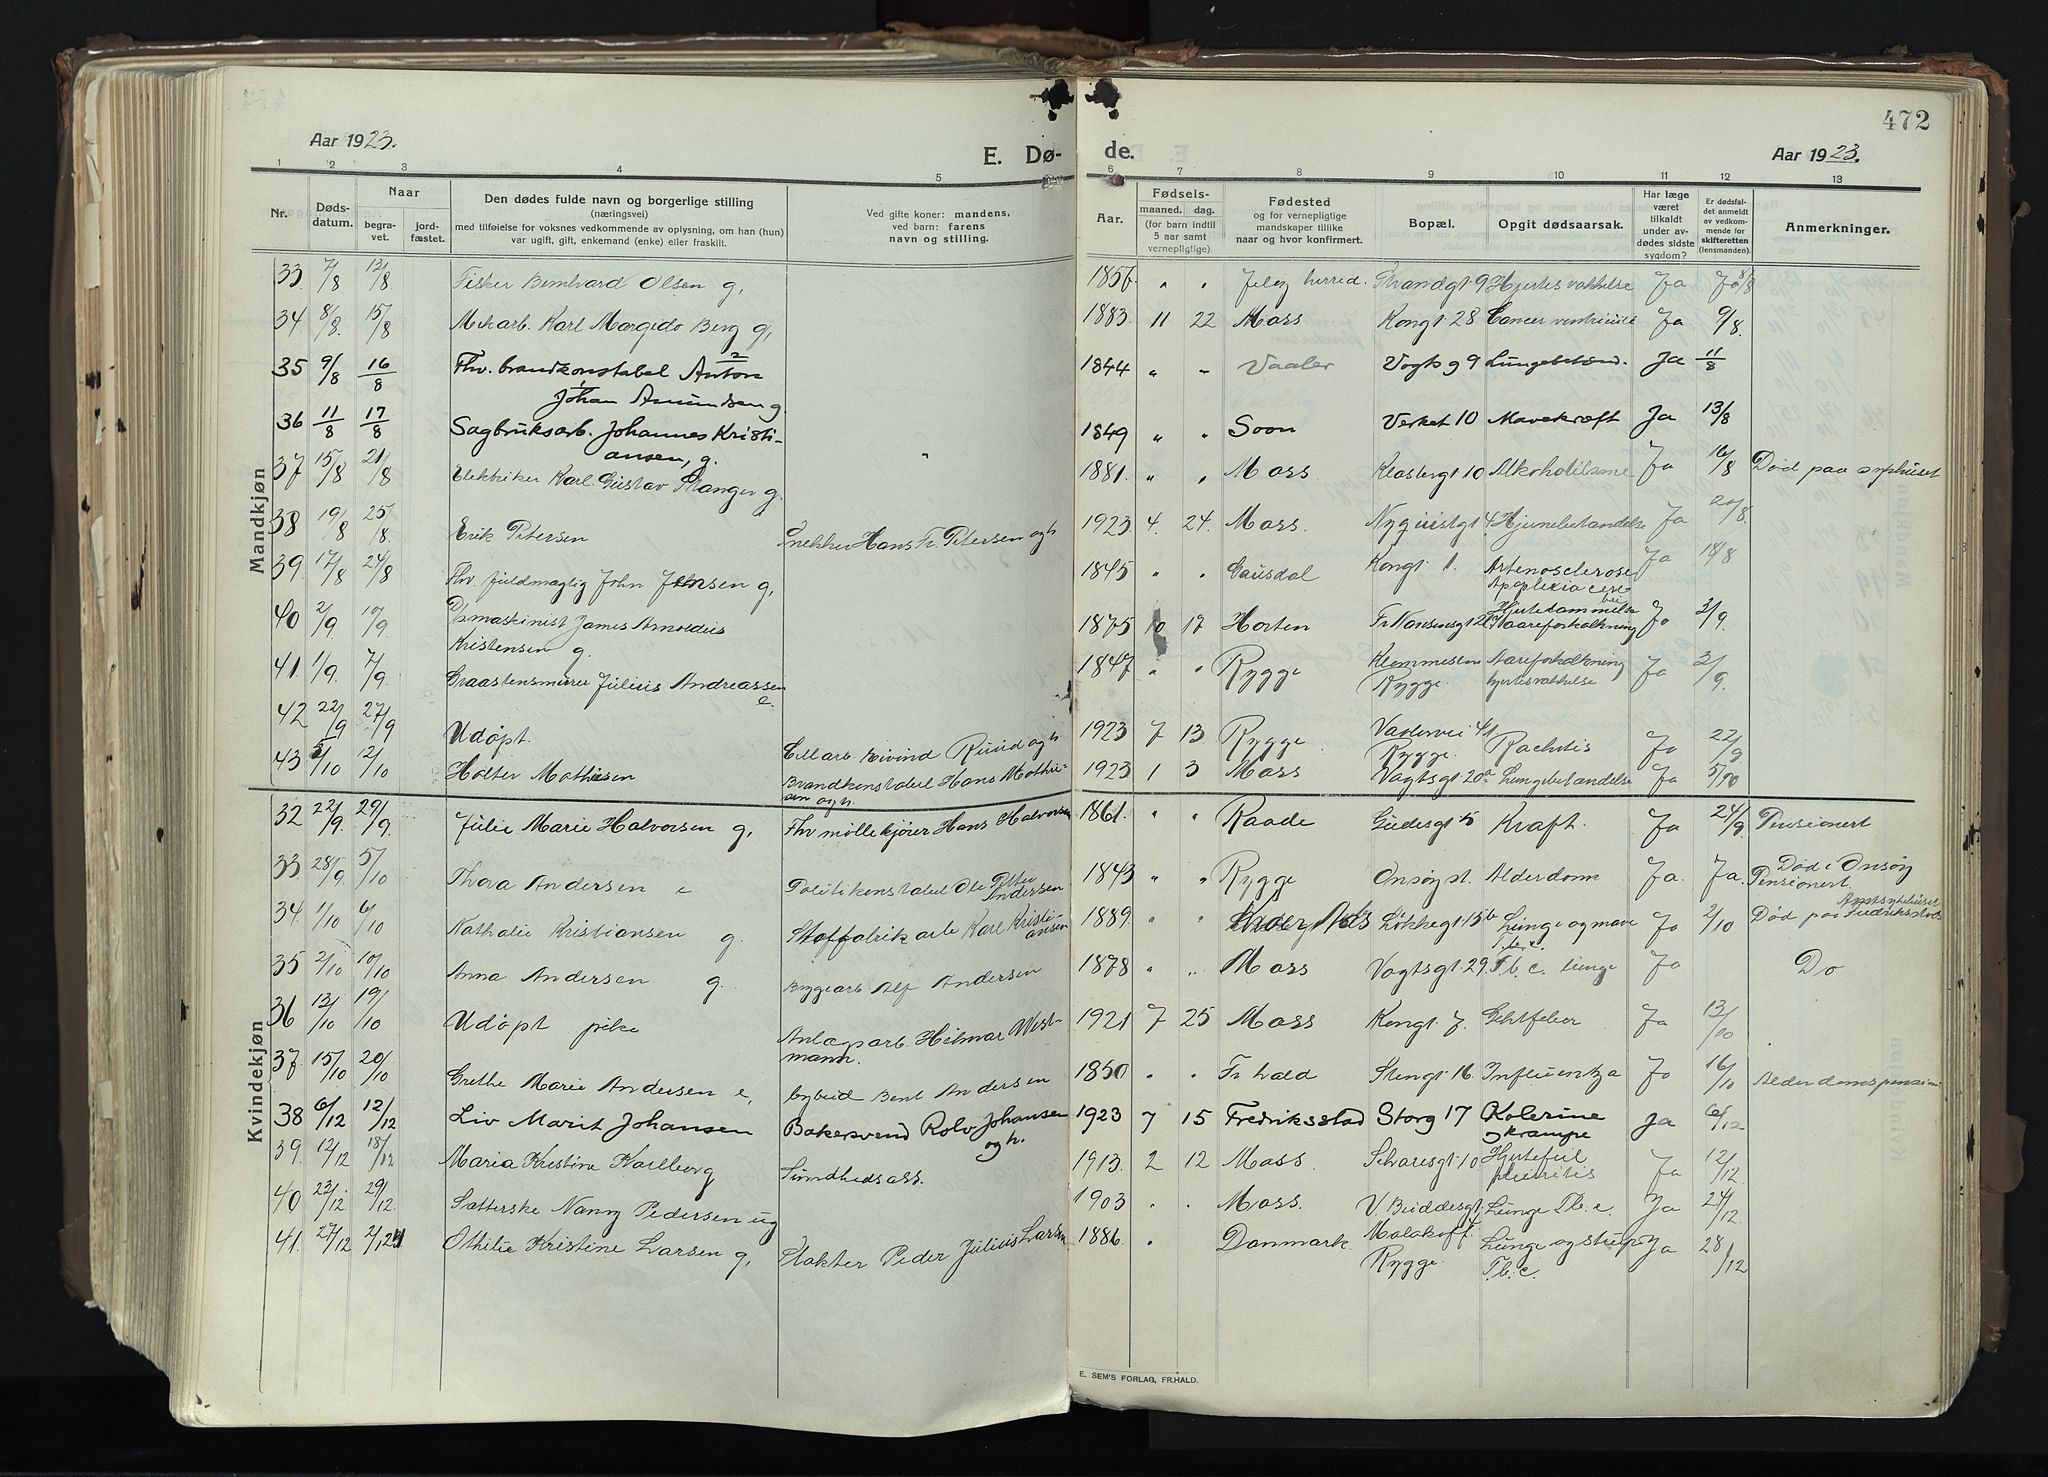 472
Aar 1923.
E. Dø-
de.
Aar 1923.
1 2 3 4 5 6 7 8 9 10 11 12 13
Nr.
Døds-
datum.
Naar
begra-
vet.
jord-
fæstet.
Den dødes fulde navn og borgerlige stilling
(næringsvei)
med tilføielse for voksnes vedkommende av oplysning, om han (hun)
var ugift, gift, enkemand (enke) eller fraskilt.
Ved gifte koner: mandens,
ved barn: farens
navn og stilling.
Aar.
Fødsels-
maaned. dag.
(for barn indtil
5 aar samt
vernepligtige)
Fødested
og for vernepligtige
mandskaper tillike
naar og hvor konfirmert.
Bopæl.
Opgit dødsaarsak.
Har læge
været
tilkaldt
under av-
dødes sidste
sygdom?
Er dødsfal-
det anmeldt
av vedkom-
mende for
skifteretten
(lensmanden).
Anmerkninger.
Mandkjøn
33 7/8 13/8 Fisker Bernhard Olsen g, 1857. " " Jeløy herred. Strandgt. 9 Hjertesvækkelse Ja Ja 8/8
34 8/8. 15/8 Mek arb. Karl Margido Berg g, 1883. 11 22 Moss Kongt. 28 Cancer ventriculi Ja 9/8.
35 9/8 16/8 Fhv. brandkonstabel Anton 1844 " " Vaaler Vogts g 9 Lungebetænd. Ja 11/8
Johan Amundsen g.
36 11/8 17/8 Sagbruksarb. Johannes Kristi- 1849 " " Soon Verket 10 Mavekræft Ja 13/8
ansen, g.
37 15/8 21/8 Elektriker Karl Gustav Stanger g. " 1881. " " Moss Klostergt 10 Alkoholisme Ja 16/8 Død paa sykhuset
38 19/8 25/8. Erik Petersen Snekker Hans Fr. Petersen og h 1923 4. 24. Moss. Nyquistgt 4. Hjernebetændelse Ja 20/8.
39. 17/8 24/8 Fhv. fuldmægtig John Jensen g, 1845 " " Gausdal Kongt. 1. Arteriosclerose Ja 18/8
Apoplexia cere
bri
40 2/9 10/9. D/s maskinist James Arnoldus 1875 10 17 Horten Fr Nansensgt 20 Hjertelammelse Ja 3/9.
Kristensen g. Aareforkalkning
41. 1/9. 7/9. Graastensmurer Julius Andreassen 1847 " " Rygge Aareforkalkning Ja 3/9.
e. Rygge. hjertesvækkelse
42 22/9 27/9 Udøpt. Cell arb Eivind Ruud og h 1923 7 13 Rygge. Rachitis Ja 22/9
Rygge.
43 2/10 Holter Mathisen Brandkonstabel Hans Mathi- 1923 1 3 Moss Vogtsgt. 20a Lungebetændelse Ja 5/10
sen og h.
Kvindekjøn
32 22/9. 29/9. Julie Marie Halvorsen g, Fhv møllekjører Hans Halvorsen 1861. " " Raade Gudesgt 15 Kræft. Ja 24/9 Pensionert
33 28/9. 5/10 Thora Andersen e Politikonstabel Ole Petter 1843 " " Rygge Onsøy st. Alderdom Ja. Ja. Død i Onsøy
Andersen Pensionert.
34. 1/10 6/10 Nathalie Kristiansen g. Karl Kristi- 1889. " " Løkkegt 15b Lunge og mave Ja 2/10 Død paa Amtsykehuset
ansen T.b.c. Fredriksstad
35 2/10 10/10 Anna Andersen g. Byggearb. Alf Andersen 1878 " " Moss Vogtsgt. 29. T.b.c. lunge Ja Do
36 13/10 19/10 Udøpt pike Anlægsarb. Hilmar West- 1921 7 25 Moss Kongt. 7. Ja 13/10
mann.
37. 15/10 20/10 Grethe Marie Andersen e, bybud Bent Andersen 1850 " " Fr hald Stengt. 16. Influentza Ja 16/10 Alderdomspension
38 6/12 12/12 Liv Marit Johansen Bakersvend Rolv Johansen 1923 7 15 Fredriksstad Storg 17 Kolerine Ja 6/12
og h. krampe
39. 12/12 18/12 Maria Kristine Karlberg Sundhedsass. 1913. 2 12 Moss. 10 Hjertefeil Ja 12/12
pleuritis
40 23/12 29/12. Sætterske Nanny Pedersen ug 1903 " " Moss. V. Buddesgt Lunge Tb.c. Ja 24/12.
41. 27/12 2/1 24 Othilie Kristine Larsen g, Slakter Peder Julius Larsen 1886. " Danmark. Malakoff Lunge og strupe Ja 28/12
Rygge. T.b.c.
E. SEM'S FORLAG, FR.HALD.